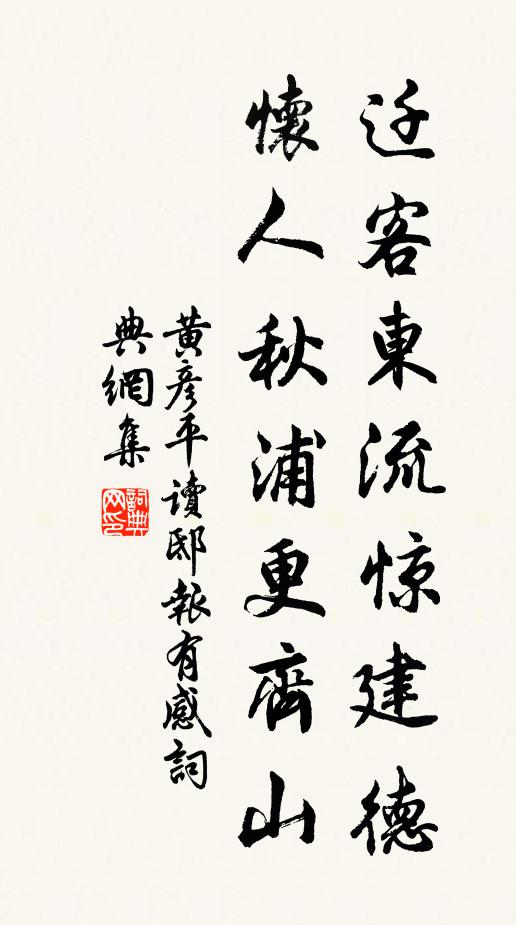 迁客東流惊建德
懷人秋浦更齊山
黄彦平讀邸報有感詞
典網集
詞典网印